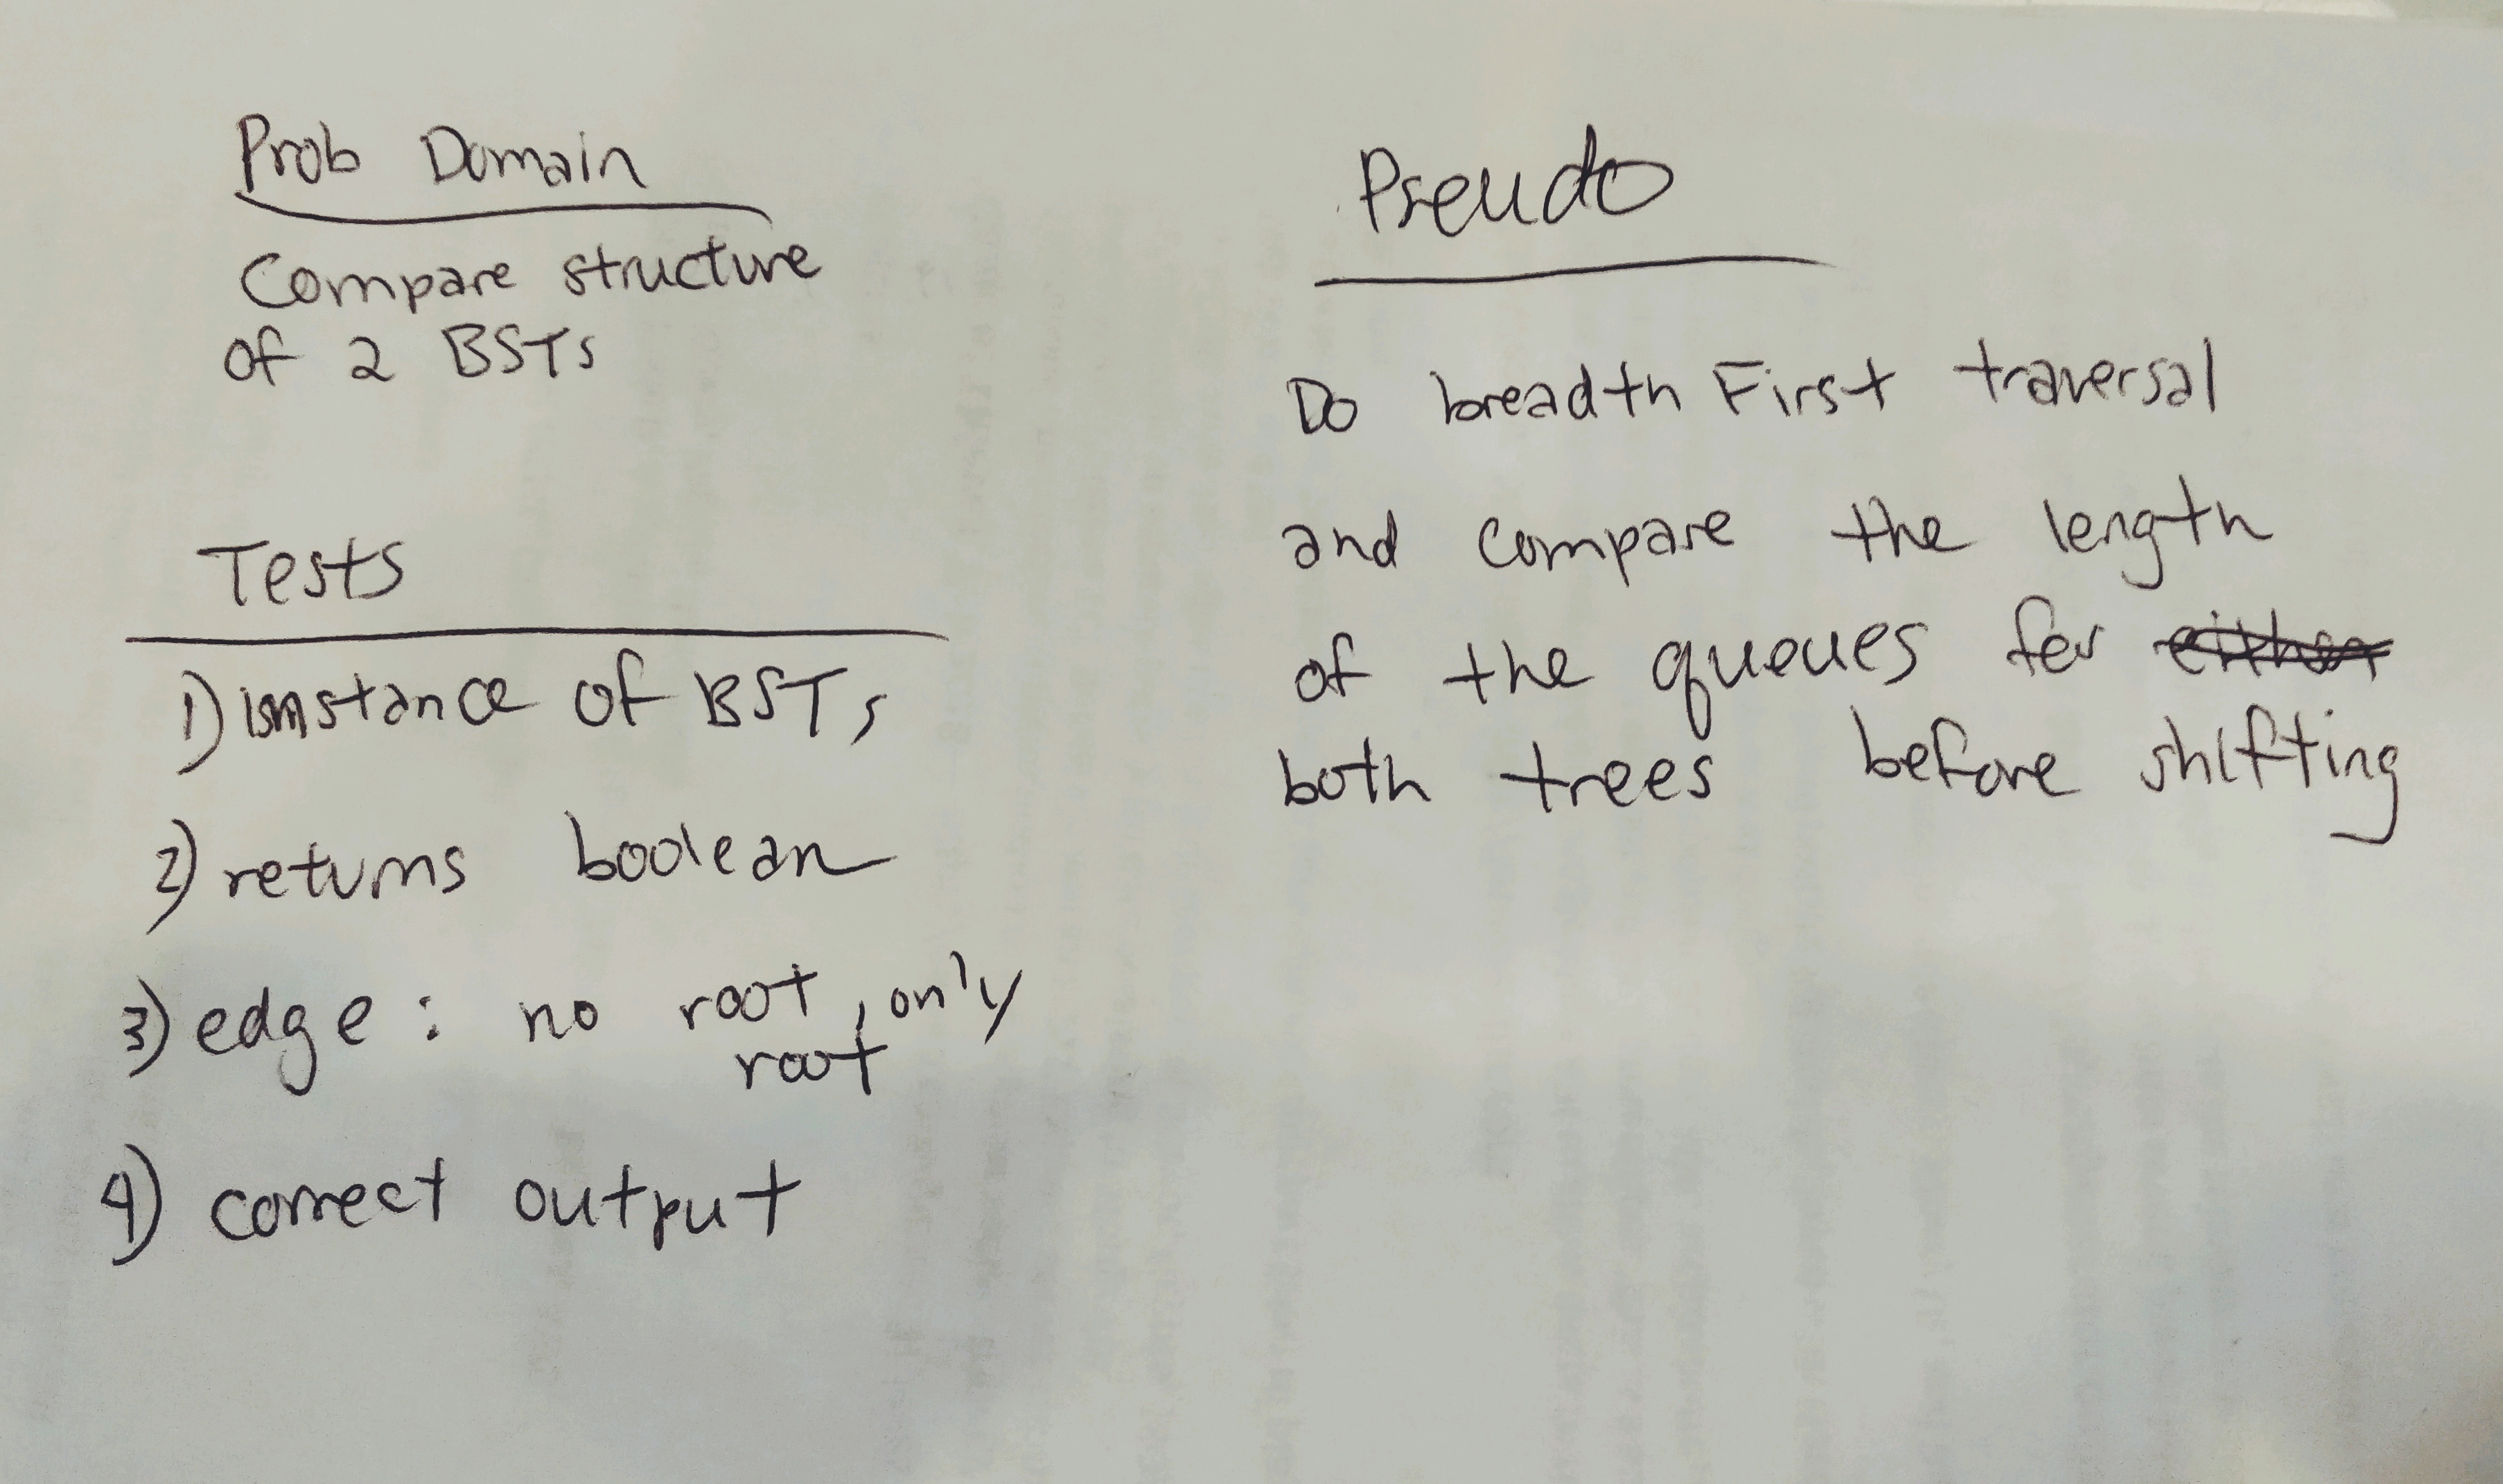 Prob Domain
Compare structure
of 2 BSTs
Tests
1) instance of BSTs
2) returns boolean
3) edge: no root, only
root
4) correct output
Pseudo
Do breadth First traversal
and compare the length
of the queues for either
both trees before shifting